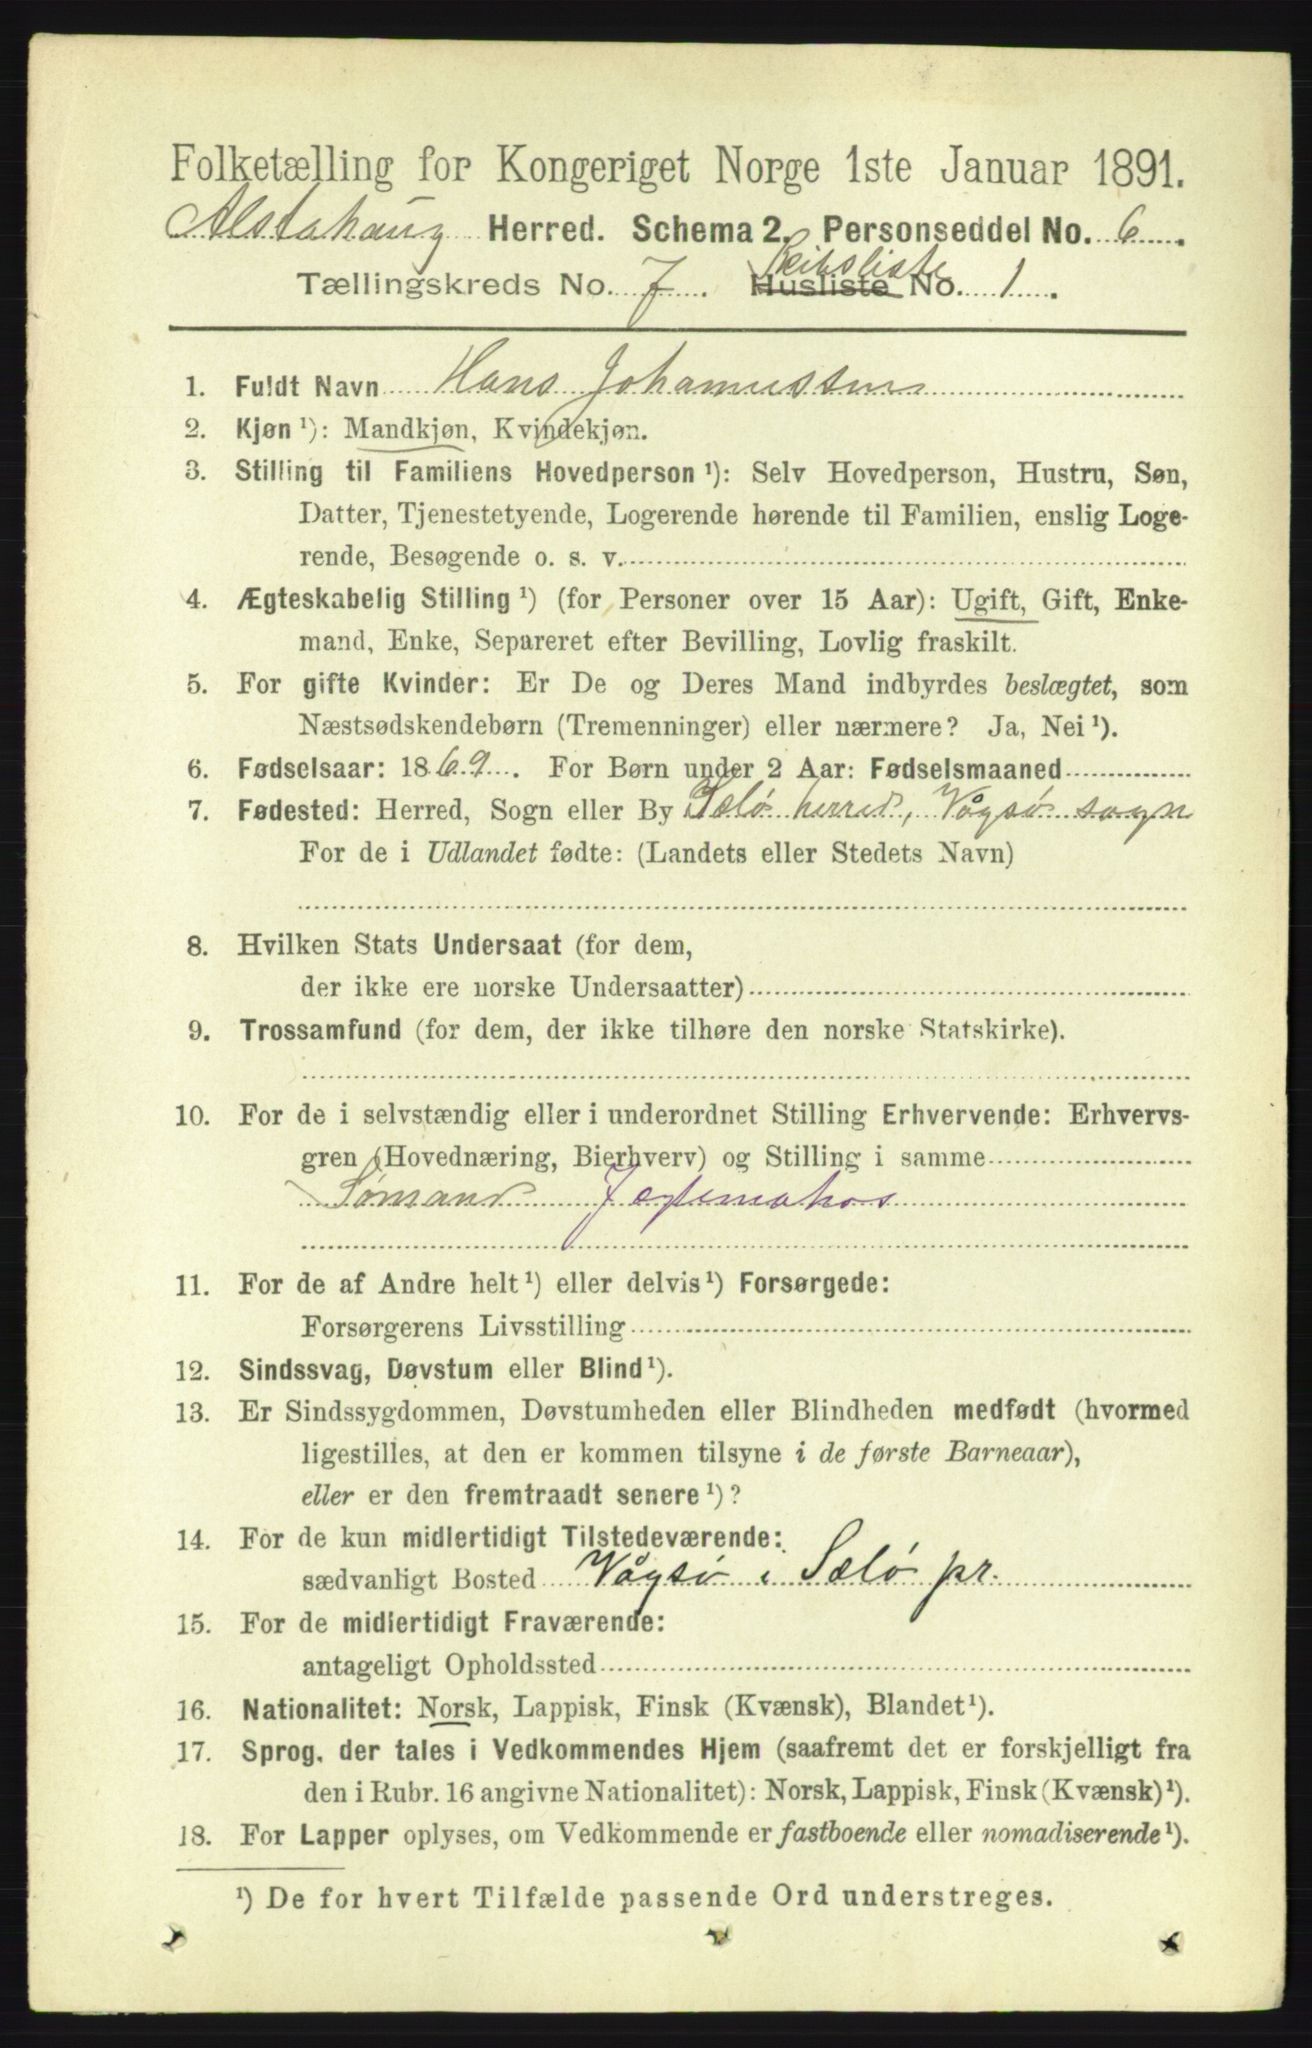 Folketælling for Kongeriget Norge 1ste Januar 1891.
Alstahaug Herred. Schema 2. Personseddel No. 6.
Skibsliste
Tællingskreds No. 7. Husliste No. 1.
1. Fuldt Navn Hans Johannessen
2. Kjøn ¹): Mandkjøn, Kvindekjøn.
3. Stilling til Familiens Hovedperson ¹): Selv Hovedperson, Hustru, Søn,
Datter, Tjenestetyende, Logerende hørende til Familien, enslig Loge-
rende, Besøgende o. s. v.
4. Ægteskabelig Stilling ¹) (for Personer over 15 Aar): Ugift, Gift, Enke-
mand, Enke, Separeret efter Bevilling, Lovlig fraskilt.
5. For gifte Kvinder: Er De og Deres Mand indbyrdes beslægtet, som
Næstsødskendebørn (Tremenninger) eller nærmere? Ja, Nei ¹).
6. Fødselsaar: 1869. For Børn under 2 Aar: Fødselsmaaned
7. Fødested: Herred, Sogn eller By Selö herred, Vågsö sogn
For de i Udlandet fødte: (Landets eller Stedets Navn)
8. Hvilken Stats Undersaat (for dem,
der ikke ere norske Undersaatter)
9. Trossamfund (for dem, der ikke tilhøre den norske Statskirke).
10. For de i selvstændig eller i underordnet Stilling Erhvervende: Erhvervs-
gren (Hovednæring, Bierhverv) og Stilling i samme
Sømand Jægtematros
11. For de af Andre helt ¹) eller delvis ¹) Forsørgede:
Forsørgerens Livsstilling
12. Sindssvag, Døvstum eller Blind ¹).
13. Er Sindssygdommen, Døvstumheden eller Blindheden medfødt (hvormed
ligestilles, at den er kommen tilsyne i de første Barneaar),
eller er den fremtraadt senere ¹)?
14. For de kun midlertidigt Tilstedeværende:
sædvanligt Bosted Vågsö i Selö pr.
15. For de midlertidigt Fraværende:
antageligt Opholdssted
16. Nationalitet: Norsk, Lappisk, Finsk (Kvænsk), Blandet ¹).
17. Sprog, der tales i Vedkommendes Hjem (saafremt det er forskjelligt fra
den i Rubr. 16 angivne Nationalitet): Norsk, Lappisk, Finsk (Kvænsk) ¹).
18. For Lapper oplyses, om Vedkommende er fastboende eller nomadiserende ¹).
¹) De for hvert Tilfælde passende Ord understreges.